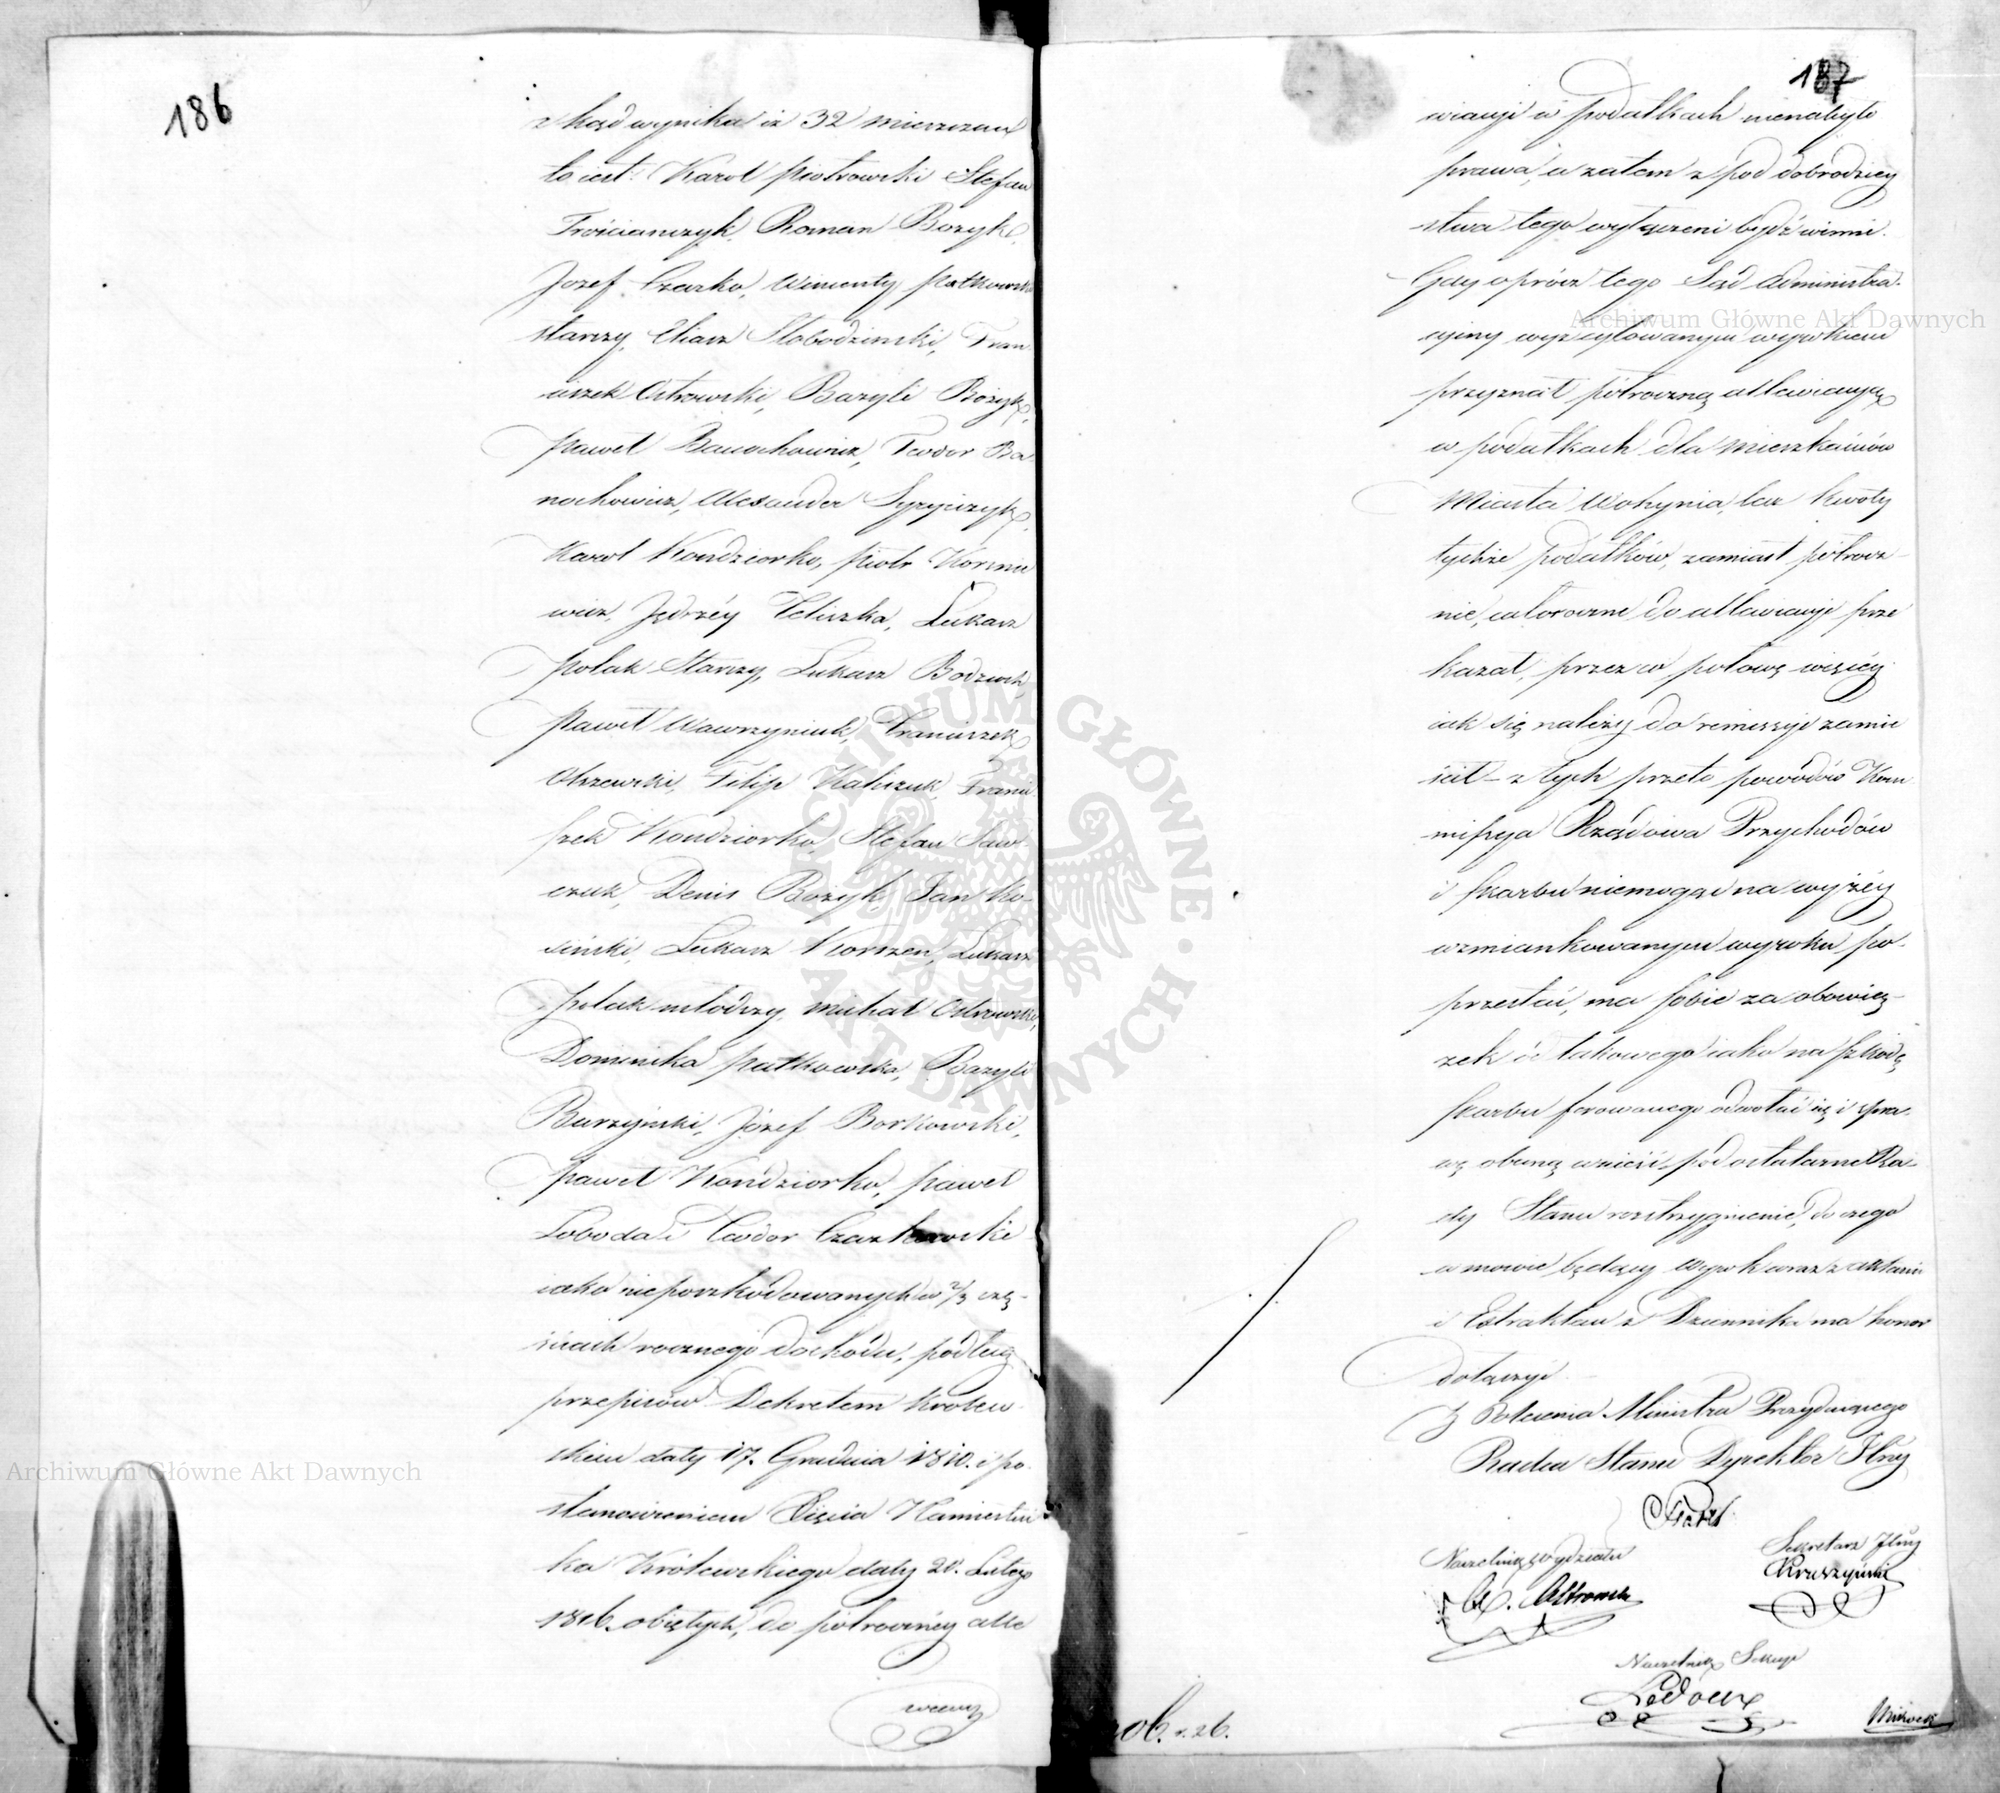 186
zkąd wynika iż 32 mieszczan
to iest: Karol Piotrowski Stefan
Trościańczyk, Roman Bozyk,
Jozef Czarko, Wincenty Patkowski
starszy, Eliasz Słobodzinski, Fran
ciszek Ostrowski, Bazyli Bozyk,
Paweł Banochowicz, Teodor Ba-
nochowicz, Alexander Syryjczyk,
Karol Kondziorko, Piotr Kornie
wicz, Jędrzéy Teliszka, Łukasz
Polak Starszy, Łukasz Bodzuch,
Paweł Wawrzyniuk, Franciszek
Olszewski, Filip Kaliszuk, Franci
szek Kondziorko, Stefan Saw-
czuk, Denis Bozyk, Jan Ko-
siński, Łukasz Korszen, Łukasz
Polak młodszy, Michał Ostrowski,
Dominika Patkowska, Bazyli
Burzyński, Józef Borkowski,
Paweł Kondziorko, Paweł
Łoboda i Teodor Czarkowski
iako nieposzkodowanych w 2/3 czę-
ściach rocznego dochodu, podług
przepisów Dekretem Królew-
skim daty 17. Grudnia 1810. i po-
stanowieniem Xięcia Namiestni
ka Królewskiego daty 20. Lutego
1816. obiętych, do półrocznéy alle
wiacyi
187
wiacyi w podatkach nienabyło
prawa, a zatem z pod dobrodziey
stwa tego wyłączeni bydź winni.
Gdy oprócz tego Sąd Administra-
cyiny wyż cytowanym wyrokiem
przyznał półroczną allewiacyą
w podatkach dla mieszkańców
Miasta Wohynia, lecz kwoty
tychże podatków, zamiast półrocz-
nie, całorocznie do allewiacyi prze
kazał, przez co połowę więcéy
iak się należy do remissyi zamie
ścił – z tych przeto powodów Kom
missya Rządowa Przychodów
i Skarbu niemogąc na wyżéy
wzmiankowanym wyroku po-
przestać, ma sobie za obowią-
zek od takowego iako na szkodę
Skarbu ferowanego odwołać się i spra-
wę obecną wnieść pod ostateczne Ra-
dy Stanu rozstrzygnienie, do czego
w mowie będący wyrok wraz z aktami
i Extraktem z Dziennika ma honor
dołączyć
Z Polecenia Ministra Prezyduiącego
Radca Stanu Dyrektor Jlny
Naczelnik Wydziału
Sekretarz Jlny
Kruszyński
Naczelnik Sekcyi
Ledoux
ob. r. 26.
Archiwum Główne Akt Dawnych
Archiwum Główne Akt Dawnych
ARCHIWUM GŁÓWNE AKT DAWNYCH